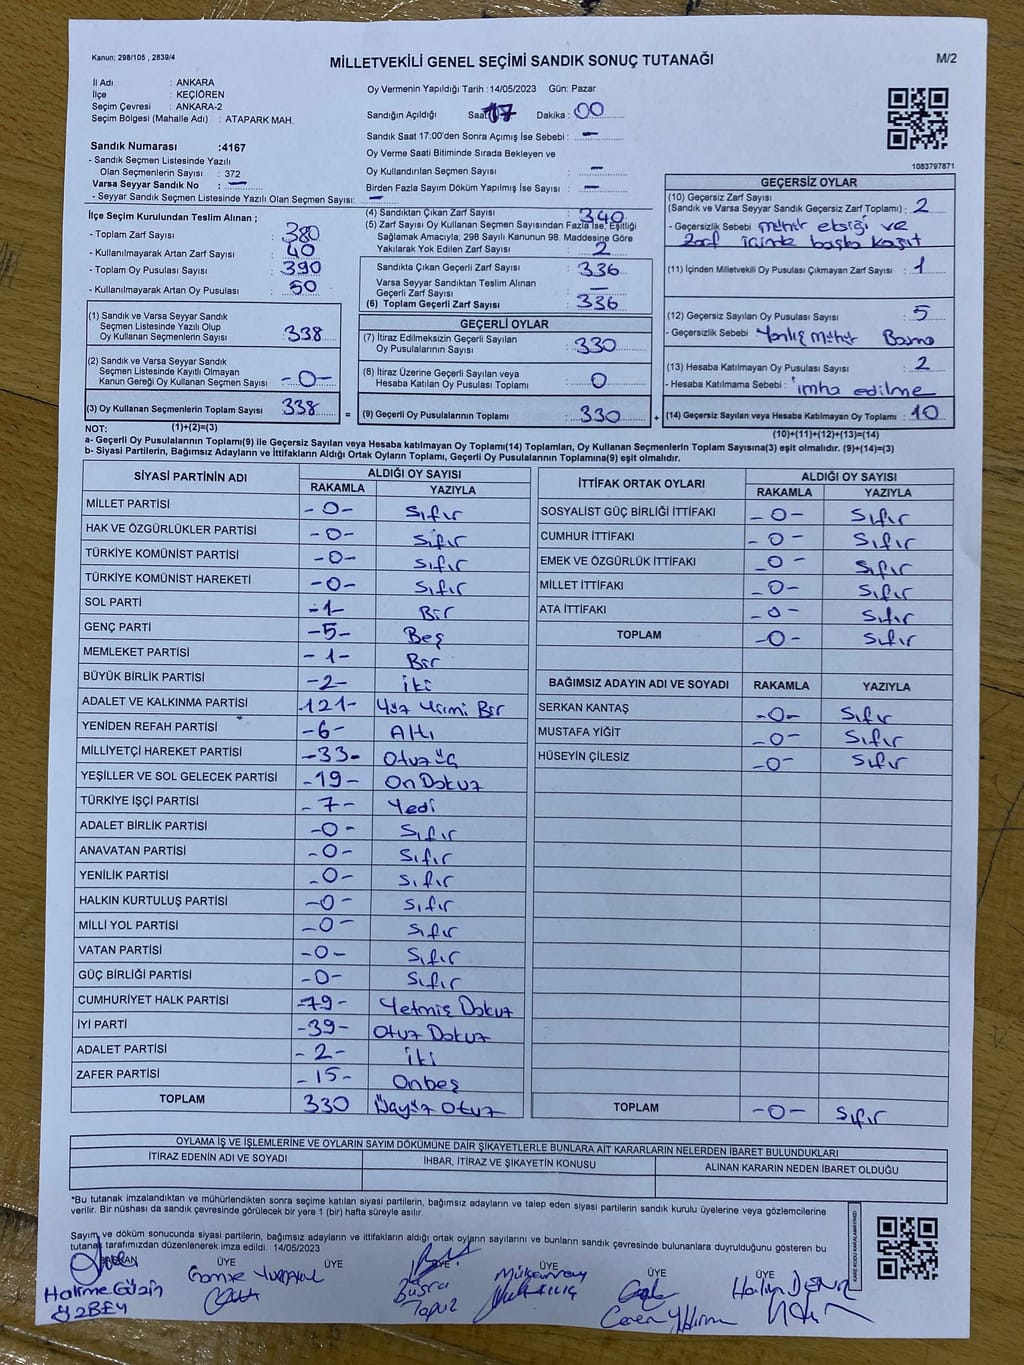 Kanun; 298/105 , 2839/4
MİLLETVEKİLİ GENEL SEÇİMİ SANDIK SONUÇ TUTANAĞI
M/2
İl Adı : ANKARA
İlçe : KEÇİÖREN
Seçim Çevresi : ANKARA-2
Seçim Bölgesi (Mahalle Adı) : ATAPARK MAH.
Sandık Numarası :4167
- Sandık Seçmen Listesinde Yazılı
Olan Seçmenlerin Sayısı : 372
Varsa Seyyar Sandık No : –
- Seyyar Sandık Seçmen Listesinde Yazılı Olan Seçmen Sayısı: –
Oy Vermenin Yapıldığı Tarih :14/05/2023 Gün: Pazar
Sandığın Açıldığı Saat 17 Dakika : 00
Sandık Saat 17:00'den Sonra Açımış İse Sebebi : –
Oy Verme Saati Bitiminde Sırada Bekleyen ve
Oy Kullandırılan Seçmen Sayısı : –
Birden Fazla Sayım Döküm Yapılmış İse Sayısı : –
1083797871
İlçe Seçim Kurulundan Teslim Alınan ;
- Toplam Zarf Sayısı : 380
- Kullanılmayarak Artan Zarf Sayısı : 40
- Toplam Oy Pusulası Sayısı : 390
- Kullanılmayarak Artan Oy Pusulası : 50
(1) Sandık ve Varsa Seyyar Sandık
Seçmen Listesinde Yazılı Olup
Oy Kullanan Seçmenlerin Sayısı : 338
(2) Sandık ve Varsa Seyyar Sandık
Seçmen Listesinde Kayıtlı Olmayan
Kanun Gereği Oy Kullanan Seçmen Sayısı : -0-
(3) Oy Kullanan Seçmenlerin Toplam Sayısı : 338 =
(1)+(2)=(3)
(4) Sandıktan Çıkan Zarf Sayısı : 340
(5) Zarf Sayısı Oy Kullanan Seçmen Sayısından Fazla İse, Eşitliği
Sağlamak Amacıyla; 298 Sayılı Kanunun 98. Maddesine Göre
Yakılarak Yok Edilen Zarf Sayısı : 2
Sandıkta Çıkan Geçerli Zarf Sayısı : 336
Varsa Seyyar Sandıktan Teslim Alınan
Geçerli Zarf Sayısı : –
(6) Toplam Geçerli Zarf Sayısı : 336
GEÇERLİ OYLAR
(7) İtiraz Edilmeksizin Geçerli Sayılan
Oy Pusulalarının Sayısı : 330
(8) İtiraz Üzerine Geçerli Sayılan veya
Hesaba Katılan Oy Pusulası Toplamı : 0
(9) Geçerli Oy Pusulalarının Toplamı : 330 +
GEÇERSİZ OYLAR
(10) Geçersiz Zarf Sayısı
(Sandık ve Varsa Seyyar Sandık Geçersiz Zarf Toplamı) : 2
- Geçersizlik Sebebi : mühür eksiği ve
zarf içinde başka kağıt
(11) İçinden Milletvekili Oy Pusulası Çıkmayan Zarf Sayısı : 1
(12) Geçersiz Sayılan Oy Pusulası Sayısı : 5
- Geçersizlik Sebebi : Yanlış Mühür Basma
(13) Hesaba Katılmayan Oy Pusulası Sayısı : 2
- Hesaba Katılmama Sebebi : imha edilme
(14) Geçersiz Sayılan veya Hesaba Katılmayan Oy Toplamı : 10
(10)+(11)+(12)+(13)=(14)
NOT:
a- Geçerli Oy Pusulalarının Toplamı(9) ile Geçersiz Sayılan veya Hesaba katılmayan Oy Toplamı(14) Toplamları, Oy Kullanan Seçmenlerin Toplam Sayısına(3) eşit olmalıdır. (9)+(14)=(3)
b- Siyasi Partilerin, Bağımsız Adayların ve İttifakların Aldığı Ortak Oyların Toplamı, Geçerli Oy Pusulalarının Toplamına(9) eşit olmalıdır.
SİYASİ PARTİNİN ADI ALDIĞI OY SAYISI
RAKAMLA YAZIYLA
MİLLET PARTİSİ -0- Sıfır
HAK VE ÖZGÜRLÜKLER PARTİSİ -0- Sıfır
TÜRKİYE KOMÜNİST PARTİSİ -0- Sıfır
TÜRKİYE KOMÜNİST HAREKETİ -0- Sıfır
SOL PARTİ -1- Bir
GENÇ PARTİ -5- Beş
MEMLEKET PARTİSİ -1- Bir
BÜYÜK BİRLİK PARTİSİ -2- iki
ADALET VE KALKINMA PARTİSİ -121- Yüz Yirmi Bir
YENİDEN REFAH PARTİSİ -6- Altı
MİLLİYETÇİ HAREKET PARTİSİ -33- Otuz üç
YEŞİLLER VE SOL GELECEK PARTİSİ -19- On Dokuz
TÜRKİYE İŞÇİ PARTİSİ -7- Yedi
ADALET BİRLİK PARTİSİ -0- Sıfır
ANAVATAN PARTİSİ -0- Sıfır
YENİLİK PARTİSİ -0- Sıfır
HALKIN KURTULUŞ PARTİSİ -0- Sıfır
MİLLİ YOL PARTİSİ -0- Sıfır
VATAN PARTİSİ -0- Sıfır
GÜÇ BİRLİĞİ PARTİSİ -0- Sıfır
CUMHURİYET HALK PARTİSİ -79- Yetmiş Dokuz
İYİ PARTİ -39- Otuz Dokuz
ADALET PARTİSİ -2- iki
ZAFER PARTİSİ -15- Onbeş
TOPLAM 330 Üçyüz Otuz
İTTİFAK ORTAK OYLARI ALDIĞI OY SAYISI
RAKAMLA YAZIYLA
SOSYALİST GÜÇ BİRLİĞİ İTTİFAKI -0- Sıfır
CUMHUR İTTİFAKI -0- Sıfır
EMEK VE ÖZGÜRLÜK İTTİFAKI -0- Sıfır
MİLLET İTTİFAKI -0- Sıfır
ATA İTTİFAKI -0- Sıfır
TOPLAM -0- Sıfır
BAĞIMSIZ ADAYIN ADI VE SOYADI RAKAMLA YAZIYLA
SERKAN KANTAŞ -0- Sıfır
MUSTAFA YİĞİT -0- Sıfır
HÜSEYİN ÇİLESİZ -0- Sıfır
TOPLAM -0- Sıfır
OYLAMA İŞ VE İŞLEMLERİNE VE OYLARIN SAYIM DÖKÜMÜNE DAİR ŞİKAYETLERLE BUNLARA AİT KARARLARIN NELERDEN İBARET BULUNDUKLARI
İTİRAZ EDENİN ADI VE SOYADI İHBAR, İTİRAZ VE ŞİKAYETİN KONUSU ALINAN KARARIN NEDEN İBARET OLDUĞU
*Bu tutanak imzalandıktan ve mühürlendikten sonra seçime katılan siyasi partilerin, bağımsız adayların ve talep eden siyasi partilerin sandık kurulu üyelerine veya gözlemcilerine
verilir. Bir nüshası da sandık çevresinde görülecek bir yere 1 (bir) hafta süreyle asılır.
Sayım ve döküm sonucunda siyasi partilerin, bağımsız adayların ve ittifakların aldığı ortak oyların sayılarını ve bunların sandık çevresinde bulunanlara duyrulduğunu gösteren bu
tutanak tarafımızdan düzenlenerek imza edildi. 14/05/2023
BAŞKAN ÜYE ÜYE ÜYE ÜYE ÜYE ÜYE
Halime Güzin
ÖZBEY
Büşra
Topuz
Ceren Yıldırım